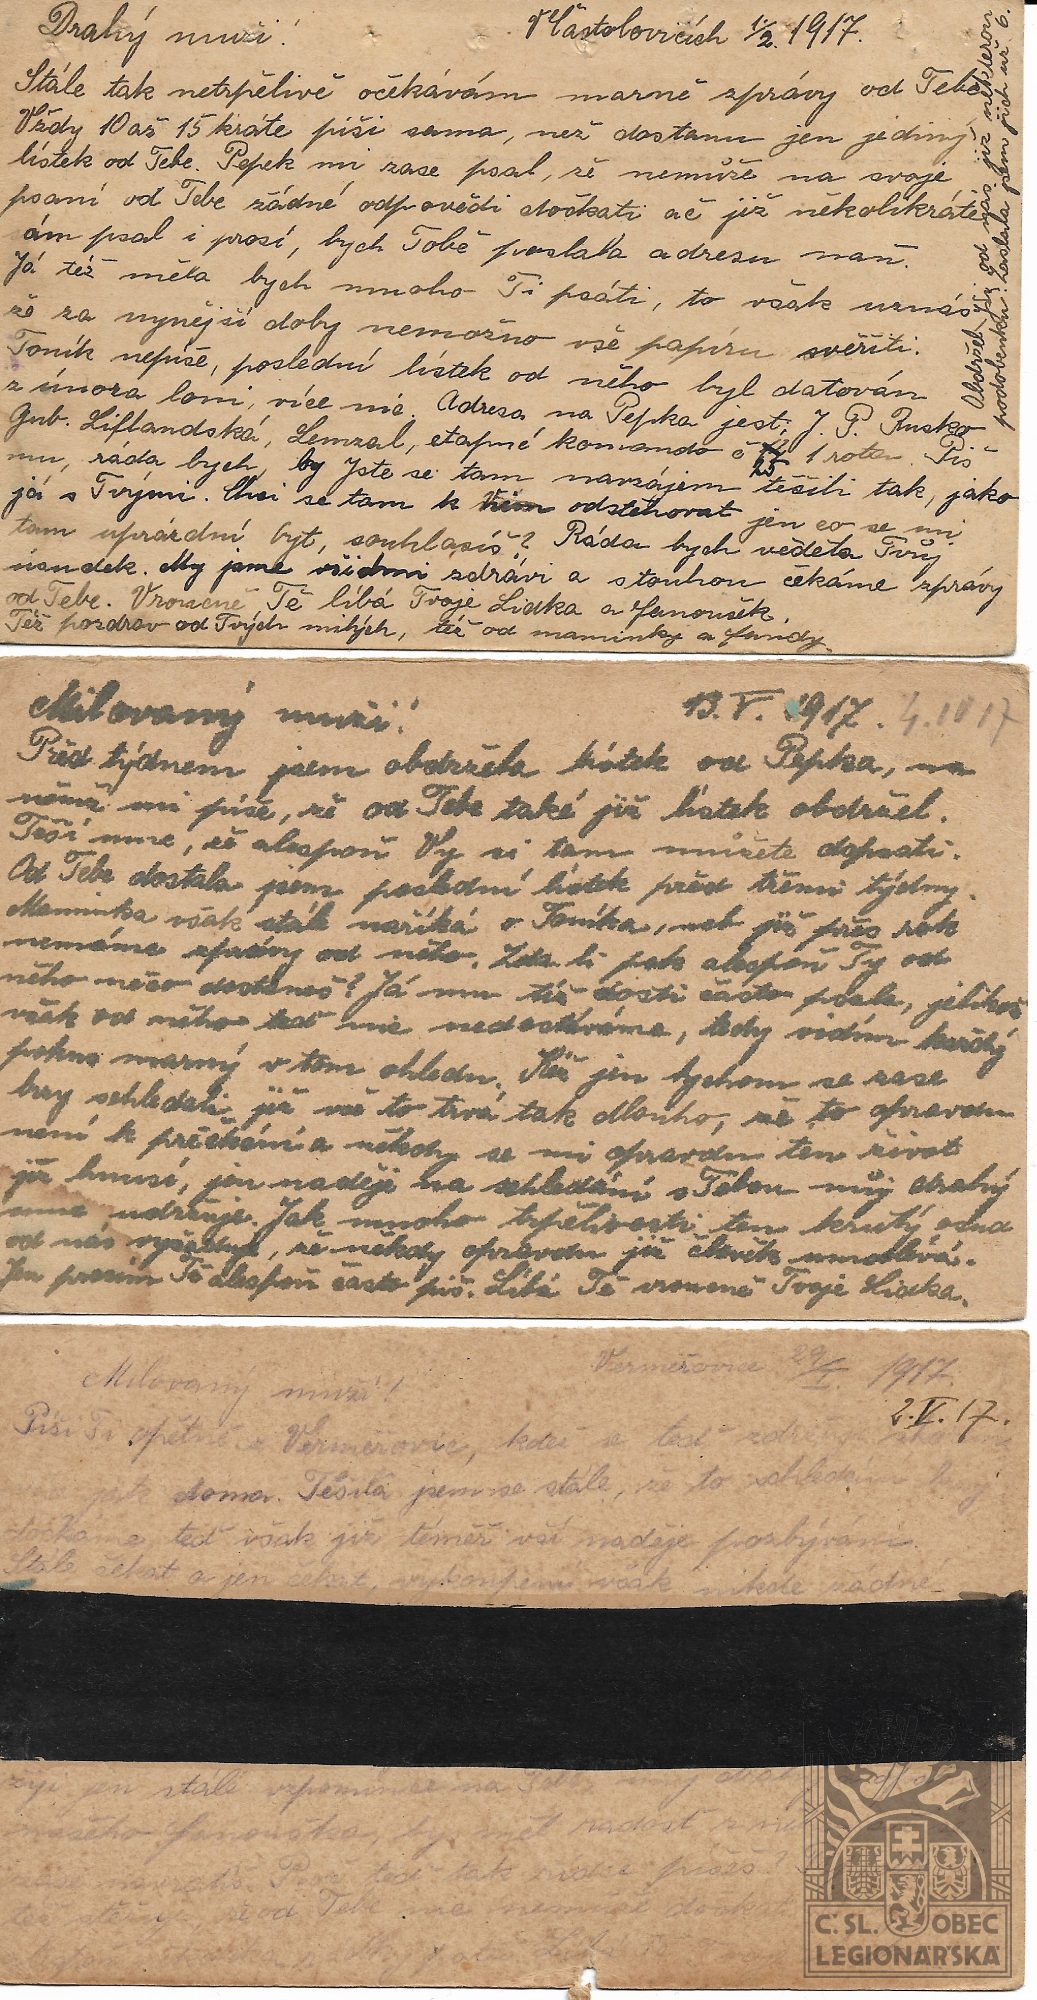 Drahý muži!
V Částolovicích 1/2. 1917.
Stále tak netrpělivě očekávám marně zprávy od Tebe.
Vždy 10 až 15 kráte píši sama, než dostanu jen jediný
lístek od Tebe. Pepek mi zase psal, že nemůže na svoje
psaní od Tebe žádné odpovědi dočkati ač již několikráte
ám psal i prosí, bych Tobě poslala adresu naň.
Já též měla bych mnoho Ti psáti, to však uznáš
že za nynější doby nemožno vše papíru svěřiti.
Toník nepíše, poslední lístek od něho byl datován
z února loni, více nic. Adresa na Pepka jest: J. P. Rusko
Gub. Liflandská, Lemzal, etapné komando č 25 1 rota. Piš
mu, ráda bych, by Jste se tam navzájem těšili tak, jako
já s Tvými. Chci se tam k odstěhovat jen co se mi
tam uprázdní byt, souhlasíš? Ráda bych věděla Tvůj
úsudek. My jsme všichni zdrávi a s touhou čekáme zprávy
od Tebe. Vroucně Tě líbá Tvoje Lidka a Fanoušek.
Též pozdrav od Tvých milých, též od maminky a Fandy.
Obdržel Jsi od nás již některou
podobenku? Zaslala jsem jich už 6.
Milovaný muži!
13. V. 1917. 4. 17
Před týdnem jsem obdržela lístek od Pepka, na
němž mi píše, že od Tebe také již lístek obdržel.
Těší mne, že alespoň Vy si tam můžete dopsati.
Od Tebe dostala jsem poslední lístek před třemi týdny.
Maminka však stále naříká o Toníka, neb již přes rok
nemáme zprávy od něho. Zda-li pak alespoň Ty od
něho něco dostaneš? Já mu též dosti často posla, jelikož
však od něho teď nic nedostáváme, tedy vidím každý
pokus marný v tom ohledu. Kéž jen bychom se zase
brzy shledali, již vše to trvá tak dlouho, že to opravdu
není k přečkání a někdy se mi opravdu ten život
již hnusí, jen naděje na shledání s Tebou můj drahý
mne udržuje. Jak mnoho trpělivosti ten krutý osud
od nás vyžaduje, že někdy opravdu již člověk umdlévá.
Jen prosím Tě alespoň často piš. Líbá Tě vroucně Tvoje Lidka.
Milovaný muži!
Verměřovice 29/I. 1917.
2. V. 17.
Píši Ti opětně z Verměřovic, kdež se teď zdržuji
jak doma. Těšila jsem se stále, že to shledání brzy
dočkáme, teď však již téměř vší naděje pozbývám.
Stále čekat a jen čekat, vykoupení však nikde žádné
žiji jen stálé vzpomínce na Tebe můj
našeho Fanouška, by měl radost
Proč teď tak píšeš?
též od Tebe nemůže dočkat
Č. SL. OBEC
LEGIONÁŘSKÁ